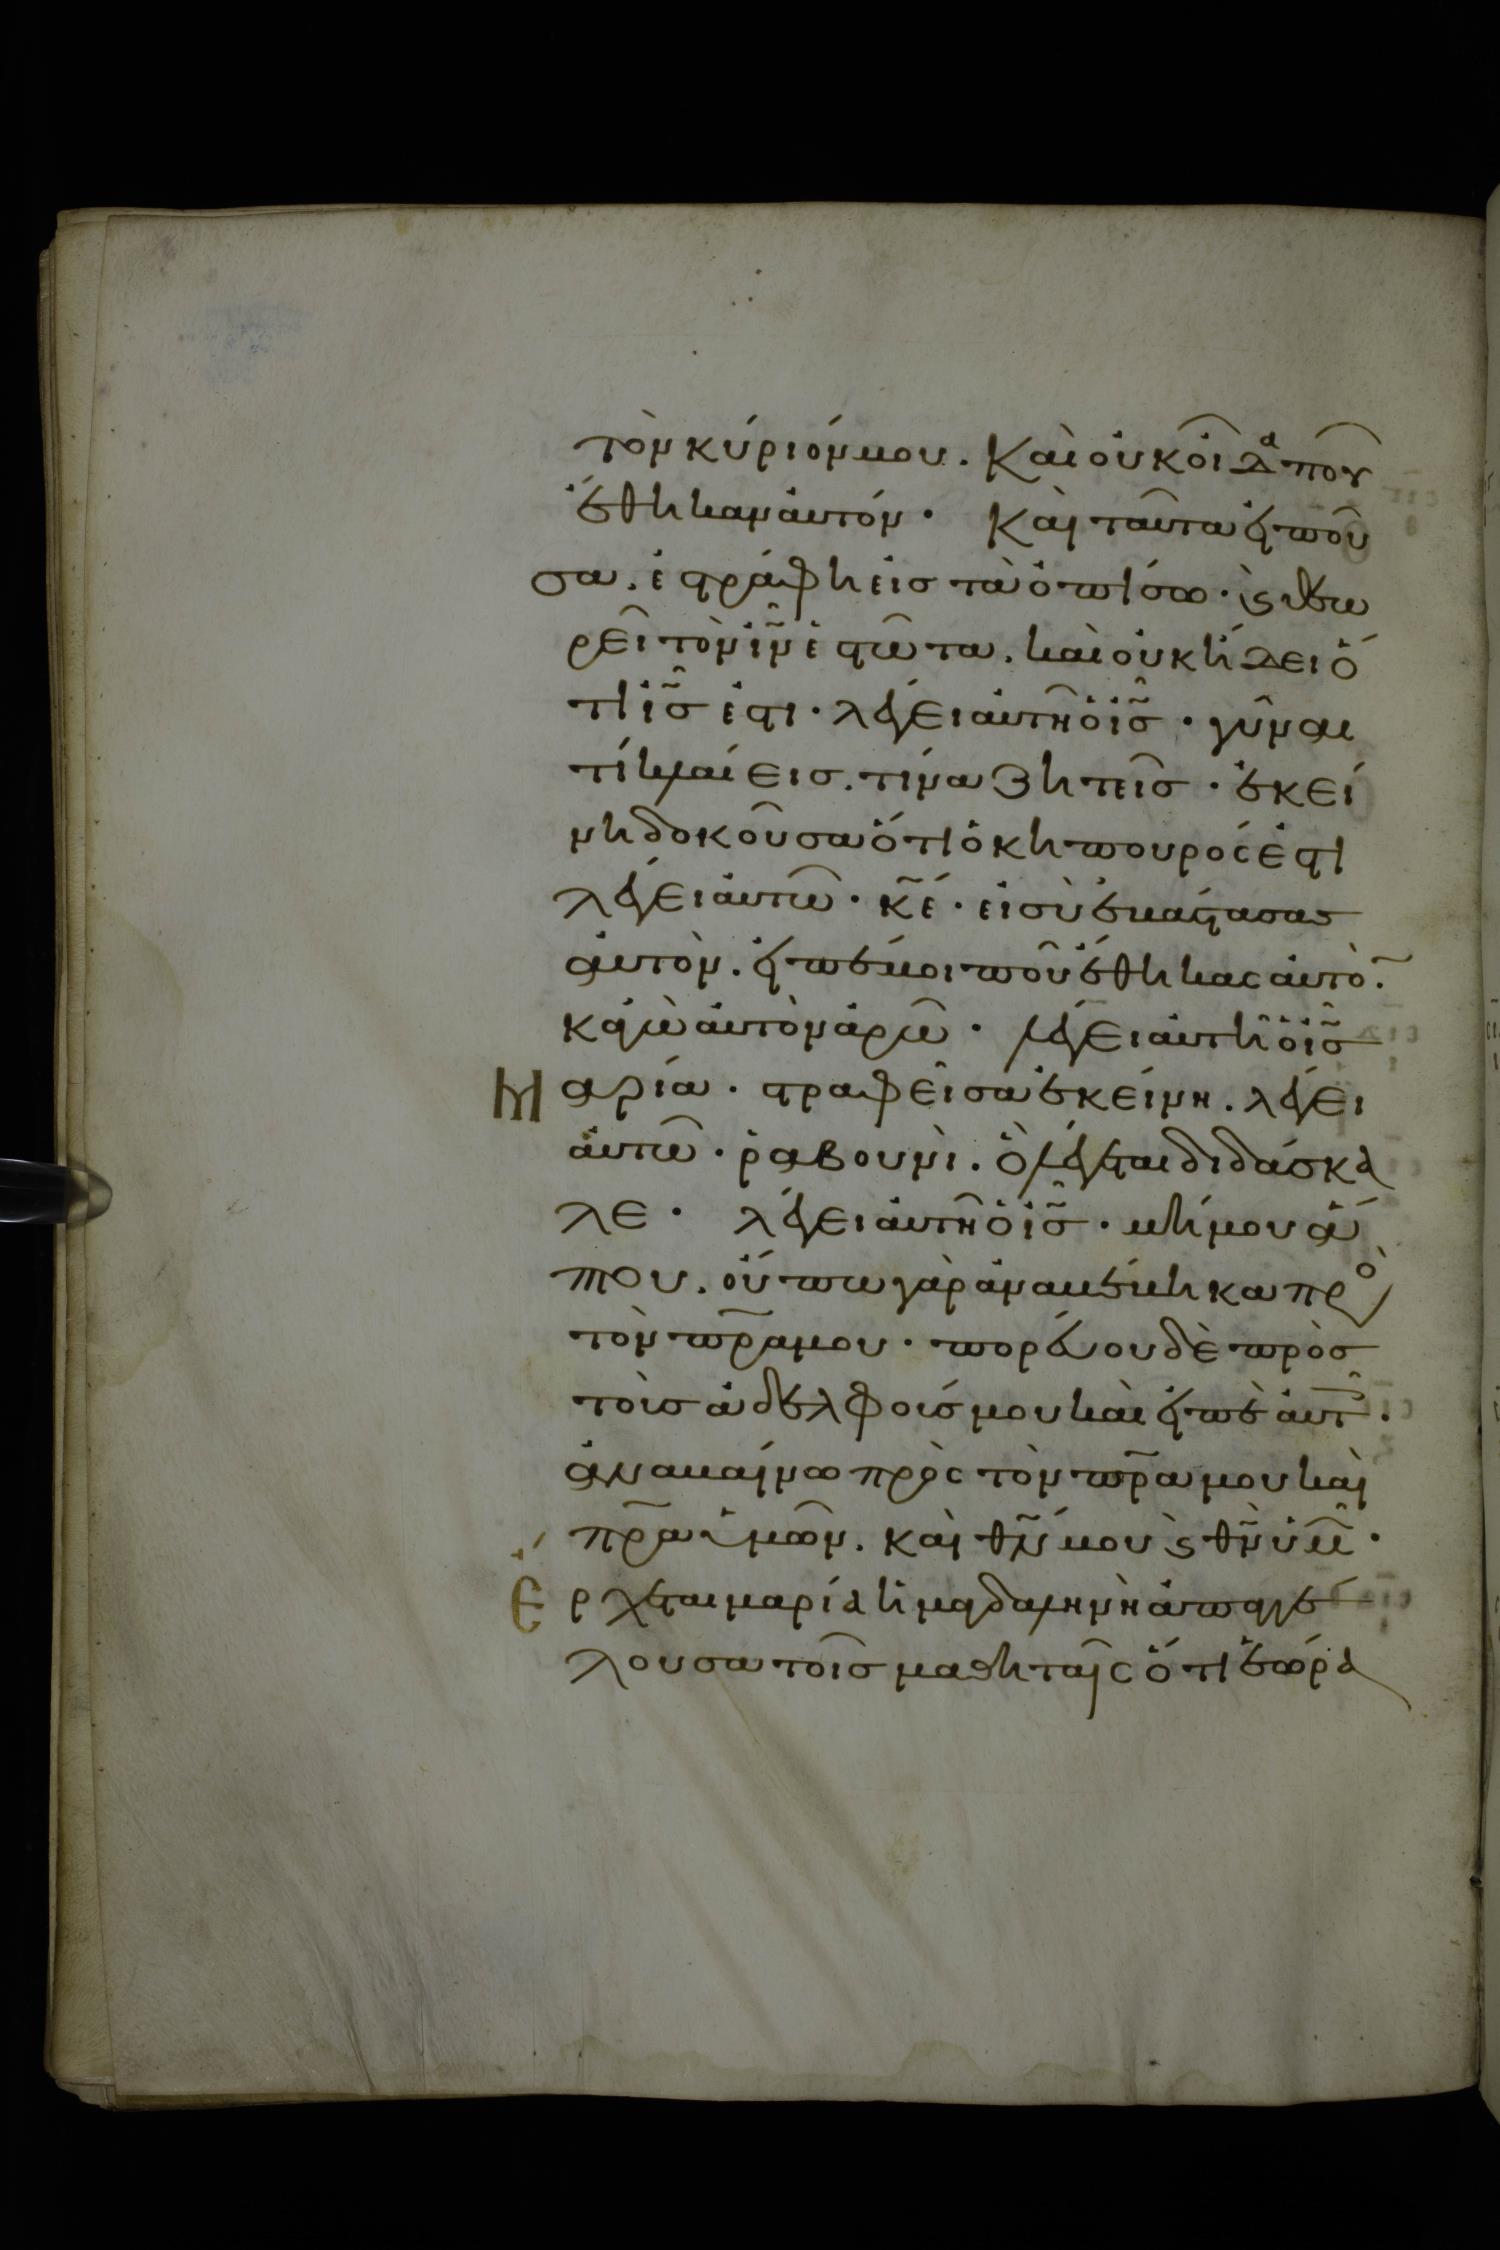 τὸν κύριόν μου. Καὶ οὐκ οἶδα ποῦ
ἔθηκαν αὐτόν· Καὶ ταῦτα εἰποῦ
σα. ἐστράφη εἰς τὰ ὀπίσω· ϗ θεω
ρεῖ τὸν ι̅ν̅ ἑστῶτα. καὶ οὐκ ἤδει ὅ
τι ι̅ς̅ ἐστι· λέγει αὐτῆ ὁ ι̅ς̅· γύναι
τί κλαίεις. τίνα ζητεῖς· ἐκεί
νη δοκοῦσα ὅτι ὁ κηπουρός ἐστι
λέγει αὐτῶ· κ̅ε̅· εἰ σὺ ἐβάστασας
αὐτὸν. εἰπέ μοι ποῦ ἔθηκας αὐτὸ̅.
κἀγὼ αὐτὸν ἀρῶ· λέγει αὐτῆ ὁ ι̅ς̅
Μαρία· στραφεῖσα ἐκείνη. λέγει
αὐτῶ· ῥαβουνὶ. ὃ λέγεται διδάσκα
λε· λέγει αὐτῆ ὁ ι̅ς̅· μή μου ἅ
πτου. οὔπω γὰρ ἀναβέβηκα πρὸ
τὸν π̅ρ̅α μου· πορεύου δὲ πρὸς
τοὺς ἀδελφούς μου καὶ εἰπὲ αὐτ·
ἀναβαίνω πρὸς τὸν π̅ρ̅α μου καὶ
π̅ρ̅α ὑμῶν. καὶ θ̅ν̅ μου ϗ θ̅ν̅ ὑμ·
Ἔρχεται μαρία ἡ μαγδαληνὴ ἀπαγγέ
λουσα τοῖς μαθηταῖς ὅτι ἑώρα